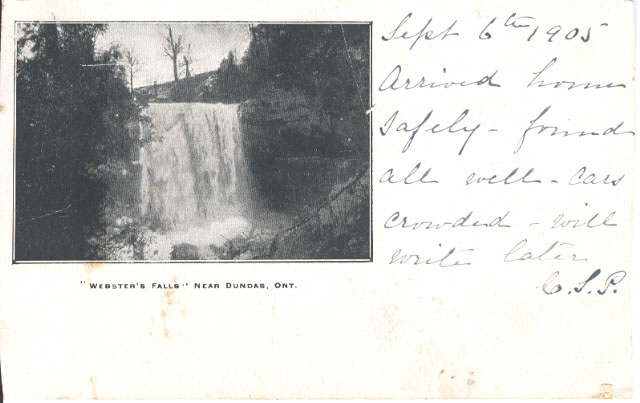 Sept 6th 1905
Arrived home
safely - found
all well - cars
crowded - will
write later
C.S.P.
"Webster's Falls" Near Dundas, Ont.